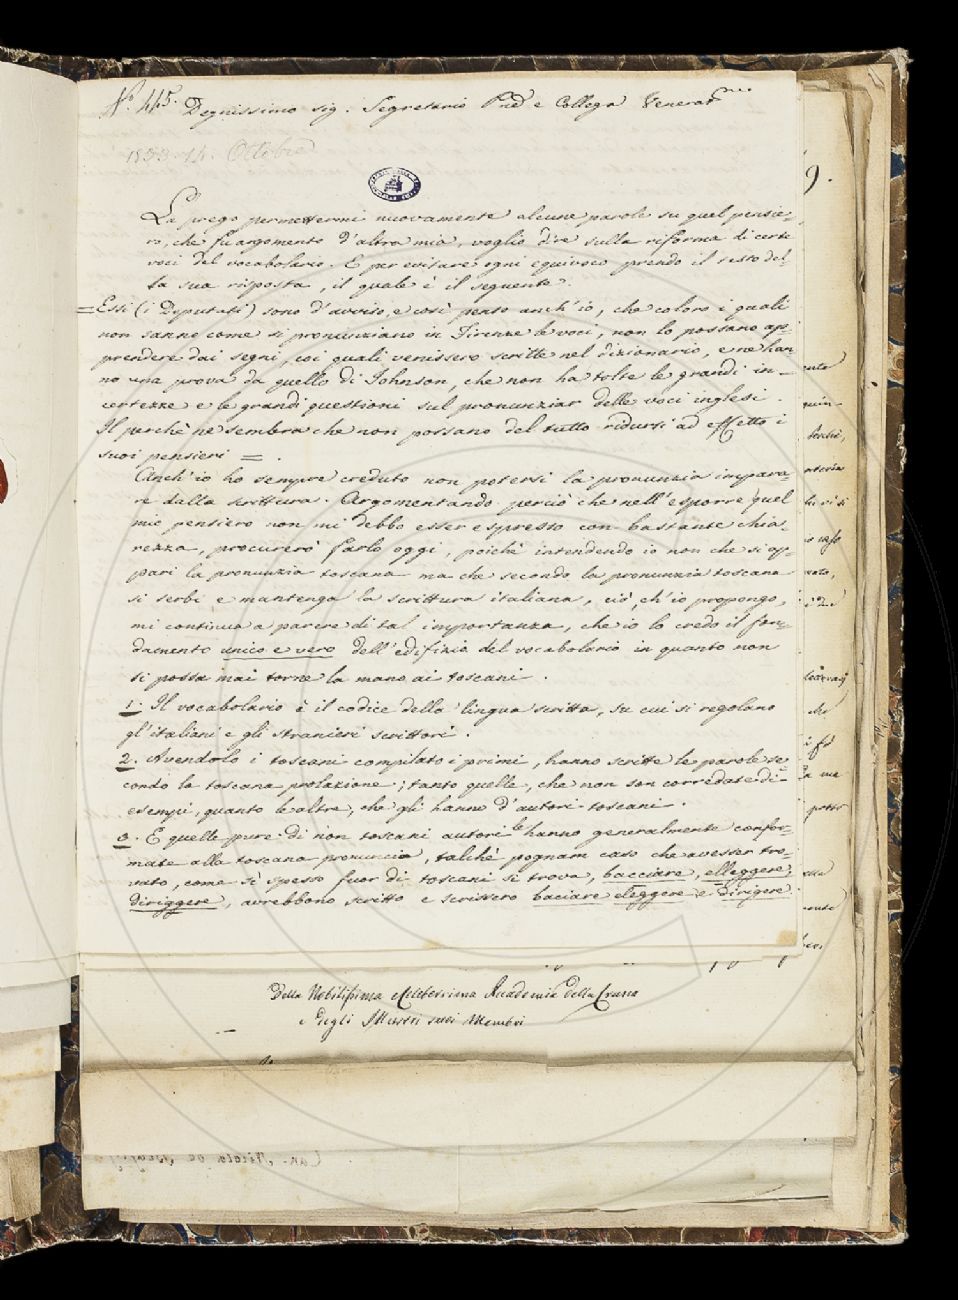 N.° 445. Degnissimo sig: Segretario Pad e Collega Venerat.mo
1833 14. Ottobre
La prego permettermi nuovamente alcune parole su quel pensie-
ro, che fu argomento d'altra mia, voglio dire sulla riforma di certe
voci del vocabolario. E per evitare ogni equivoco prendo il testo del-
la sua risposta, il quale è il seguente.
= Essi (i Deputati) sono d'avviso, e così penso anch'io, che coloro i quali
non sanno come si pronunziano in Firenze le voci, non lo possano ap-
prendere dai segni, coi quali venissero scritte nel dizionario, e ne han-
no una prova da quello di Johnson, che non ha tolte le grandi in-
certezze e le grandi questioni sul pronunziar delle voci inglesi.
Il perchè ne sembra che non possano del tutto ridursi ad effetto i
suoi pensieri = .
Anch'io ho sempre creduto non potersi la pronunzia impara-
re dalla scrittura. Argomentando perciò che nell'esporre quel
mio pensiero non mi debbo esser espresso con bastante chia-
rezza, procurerò farlo oggi, poichè intendendo io non che si ap-
pari la pronunzia toscana ma che secondo la pronunzia toscana
si serbi e mantenga la scrittura italiana, ciò, ch'io propongo,
mi continua a parere di tal importanza, che io lo credo il fon-
damento unico e vero dell'edifizio del vocabolario in quanto non
si possa mai torne la mano ai toscani.
1. Il vocabolario è il codice della lingua scritta, su cui si regolano
gl'italiani e gli stranieri scrittori.
2. Avendolo i toscani compilato i primi, hanno scritte le parole se-
condo la toscana prolazione; tanto quelle, che non son corredate di
esempi, quanto le altre, che gli hanno d'autori toscani.
3. E quelle pure di non toscani autori le hanno generalmente confor-
mate alla toscana pronuncia, talchè pognam caso che avesser tro-
vato, come sì spesso fuor di toscani si trova, bacciare, elleggere,
diriggere, avrebbono scritto e scrissero baciare eleggere e dirigere.
Della Nobilissima e Celeberrima Accademia della Crusca
e degli Illustri suoi Membri